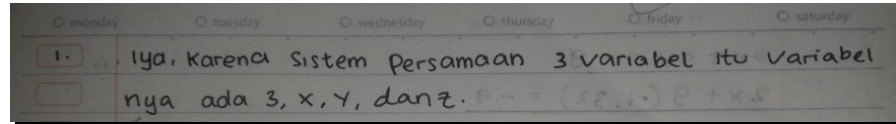 monday tuesday wednesday thursday friday saturday
1. a. Iya, karena Sistem Persamaan 3 variabel itu variabel
nya ada 3, x, y, dan z.